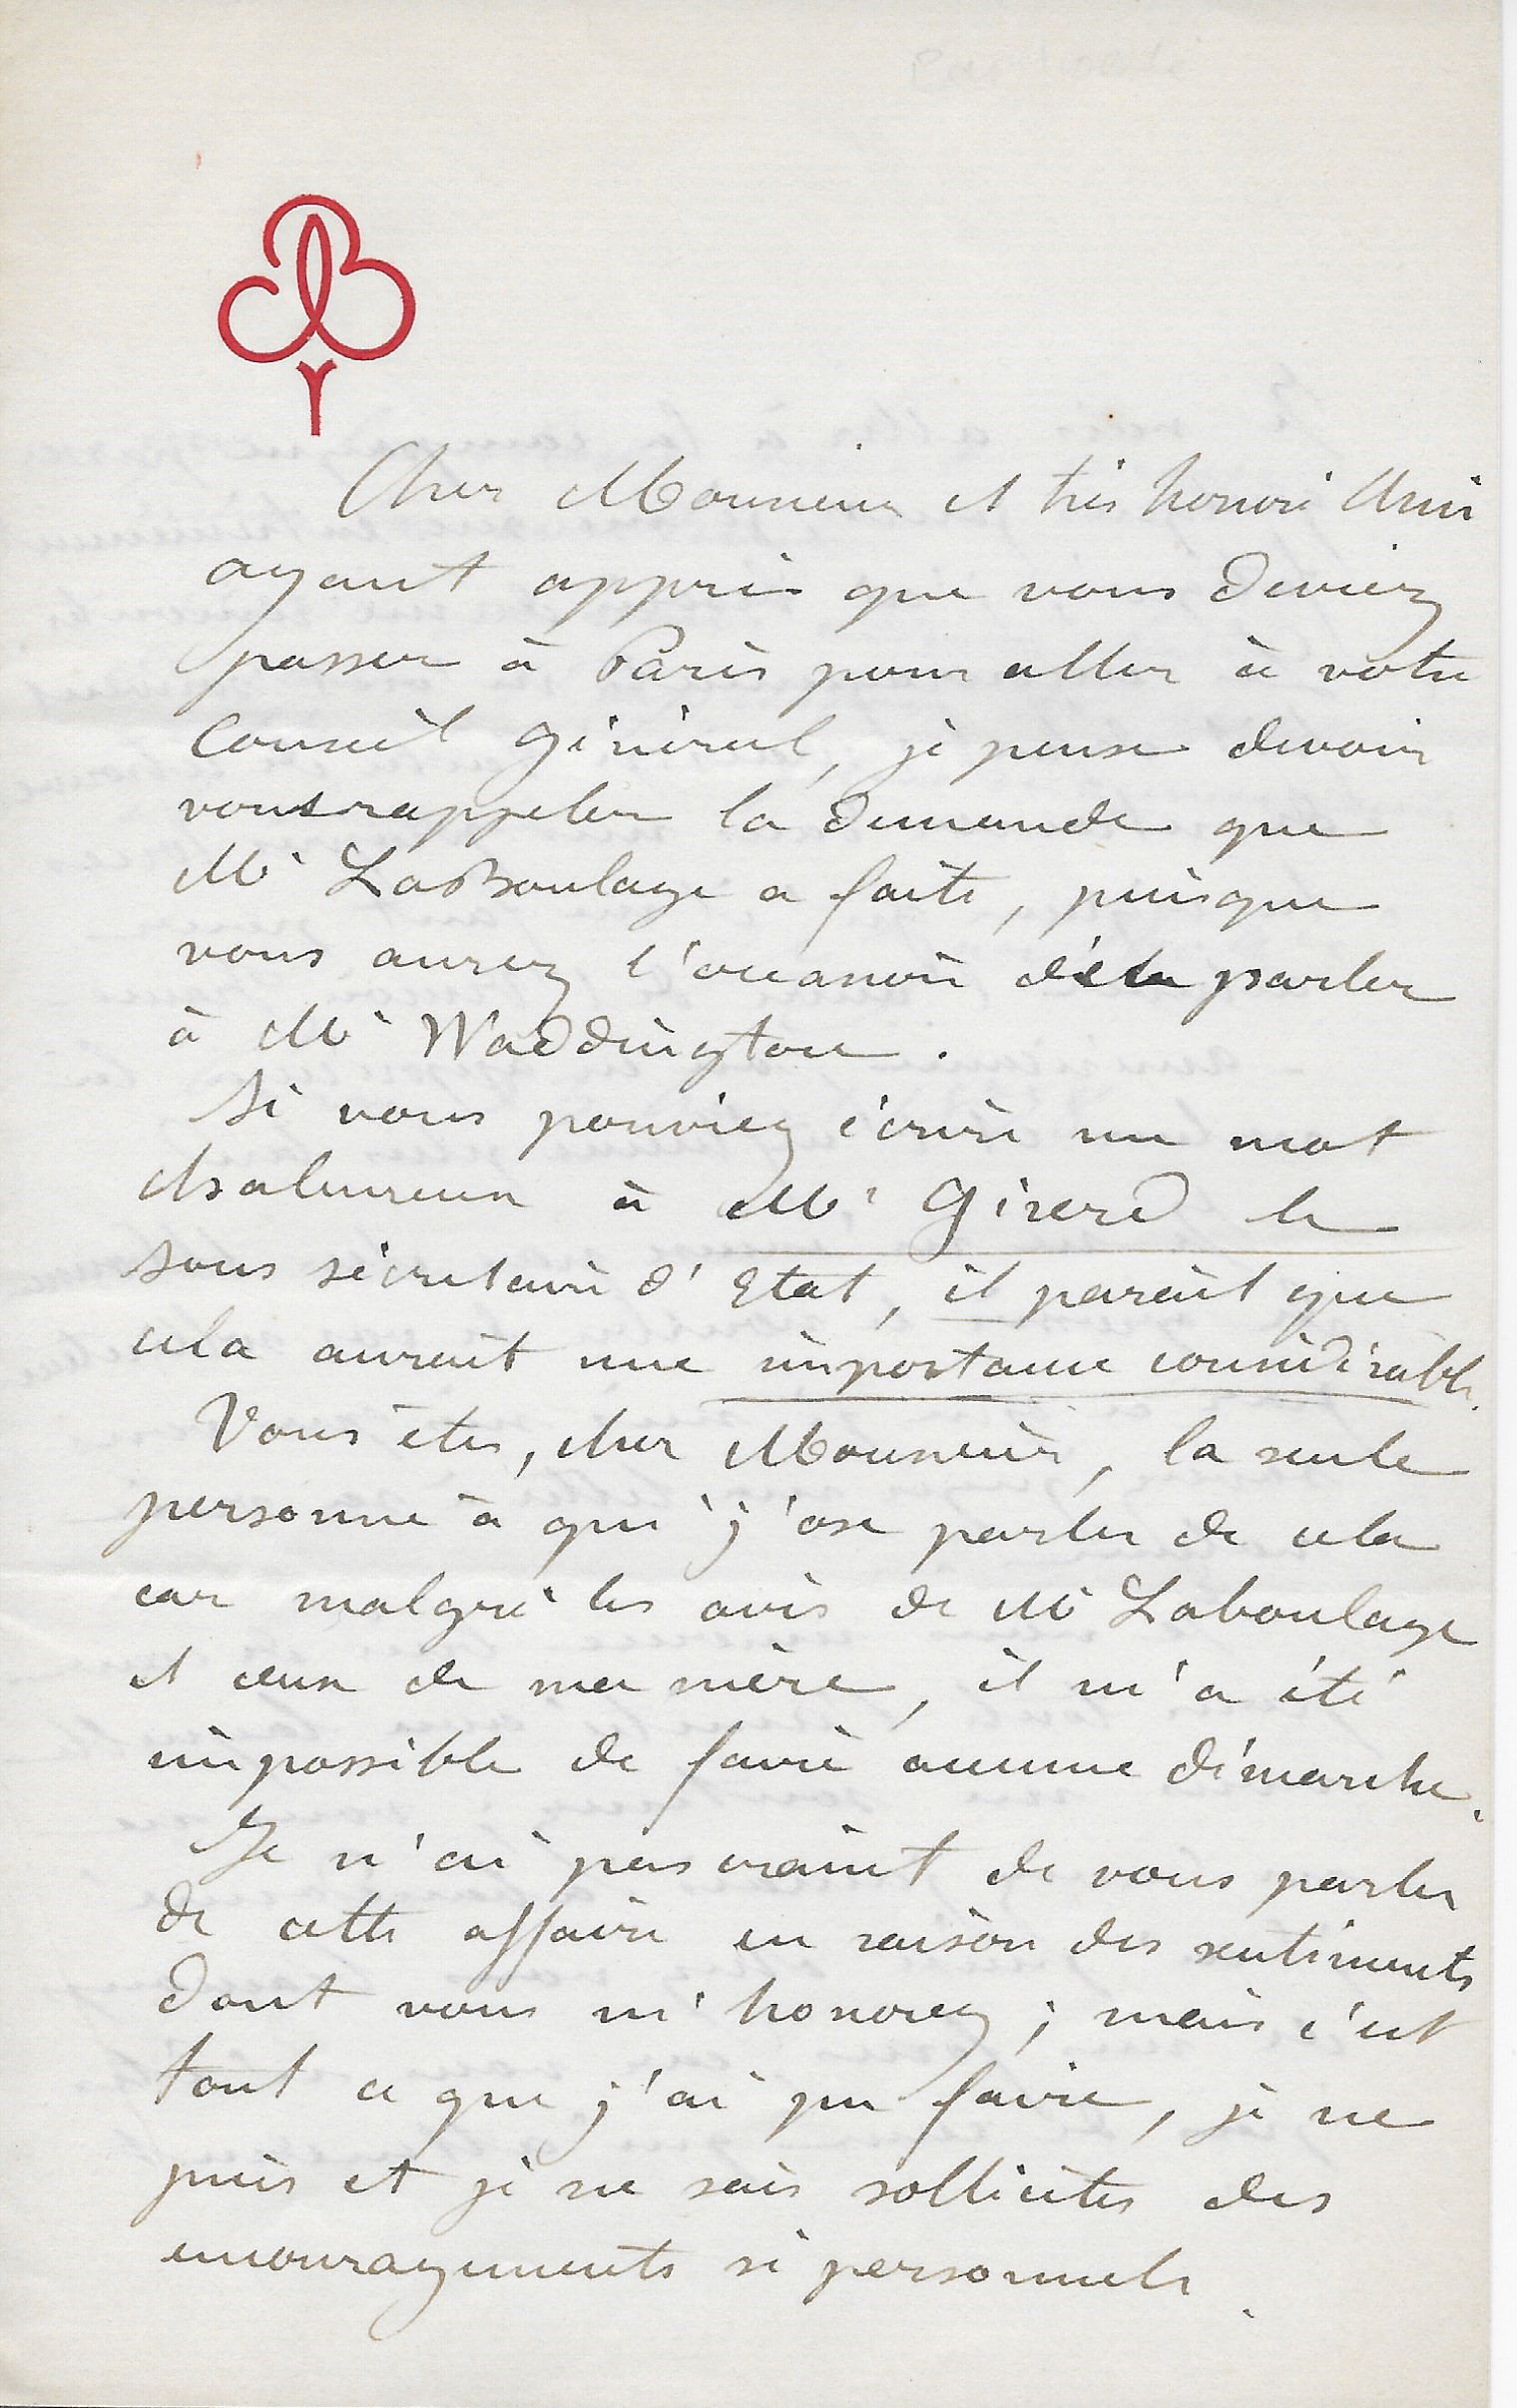 Cher Monsieur et très honoré Ami
ayant appris que vous deviez
passer à Paris pour aller à votre
Conseil général, je pense devoir
vous rappeler la demande que
Mr LaBoulaye a faite, puisque
vous aurez l'occasion de la parler
à Mr Waddington.
Si vous pouviez écrire un mot
chaleureux à Mr Girerd le
sous secrétaire d'Etat, il parait que
cela aurait une importance considérable.
Vous êtes, cher Monsieur, la seule
personne à qui j'ose parler de cela
car malgré les avis de Mr Laboulaye
et ceux de ma mère, il m'a été
impossible de faire aucune démarche.
Je n'ai pas craint de vous parler
de cette affaire en raison des sentiments
dont vous m'honorez ; mais c'est
tout ce que j'ai pu faire, je ne
puis et je ne sais solliciter des
encouragements si personnels.